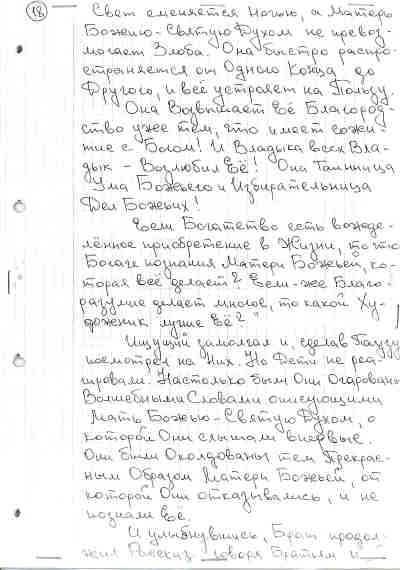 18
Свет сменяется Ночью, а Матерь
Божию-Святую Духом не превоз-
могает Злоба. Она быстро распро-
страняется от Одного Конца до
Другого, и всё устрояет на Пользу.
Она Возвышает Её Благород-
ство уже тем, что имеет сожи-
тие с Богом! И Владыка всех Вла-
дык – Возлюбил Её! Она Таинница
Ума Божьего и Избирательница
Дел Божьих!
Если Богатство есть вожде-
лённое приобретение в Жизни, то что
Богаче познания Матери Божьей, ко-
торая всё делает? Если-же Благо-
разумие делает многое, то какой Ху-
дожник лучше Её?"
Ищущий замолчал и, сделав Паузу
посмотрел на Них. Но Дети не реа-
гировали. Настолько были Они Очарованы
Волшебными Словами описующими
Мать Божью-Святую Духом, о
которой Они слышали впервые.
Они были Околдованы тем Прекрас-
ным Образом Матери Божьей, от
которой Они отказывались, и не
познали Её.
И улыбнувшись, Брат продол-
жил Рассказ говоря Братьям и